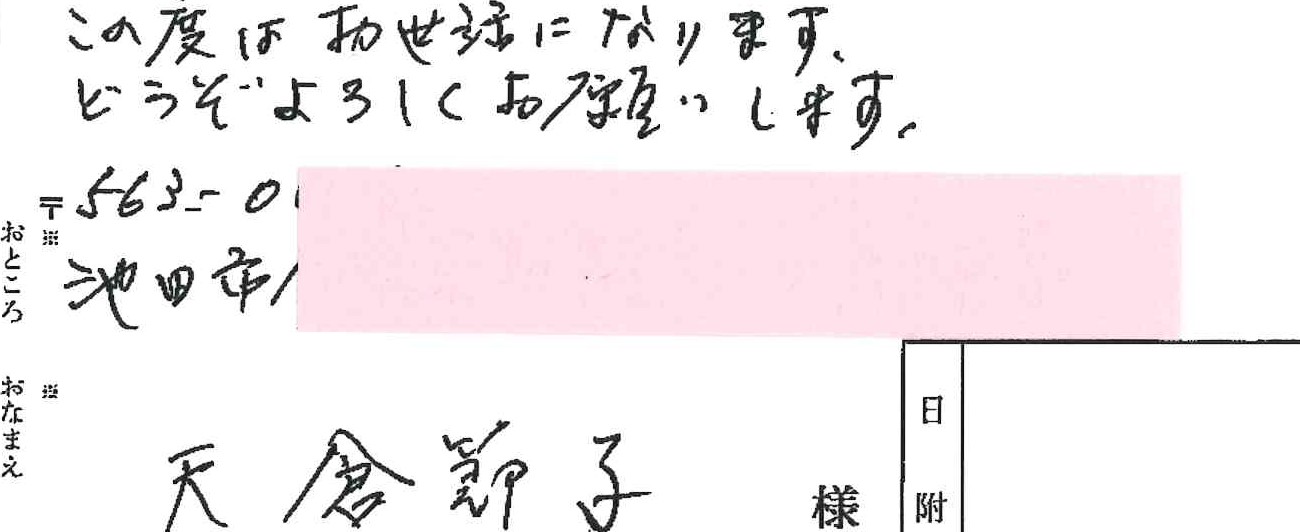 この度はお世話になります。
どうぞよろしくお願いします。
〒563-0
※
おところ
池田市
※
おなまえ
天倉節子 様
日附